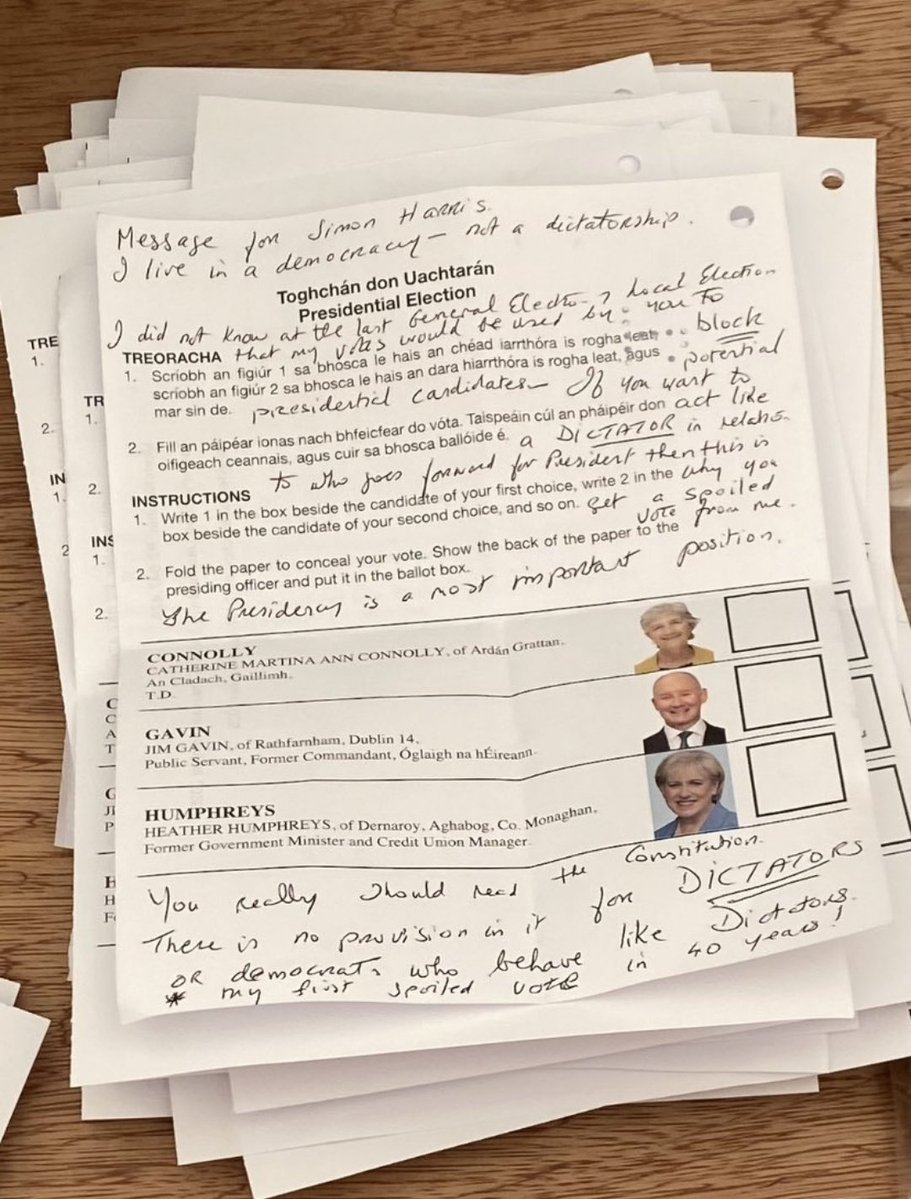 Message for Simon Harris.
I live in a democracy – not a dictatorship.
Toghchán don Uachtarán
Presidential Election
I did not know at the last General Election, Local Election
TREORACHA that my votes would be used by you to
1. Scríobh an figiúr 1 sa bhosca le hais an chéad iarrthóra is rogha leat block
scríobh an figiúr 2 sa bhosca le hais an dara hiarrthóra is rogha leat, agus potential
mar sin de. presidential candidates – If you want to
2. Fill an páipéar ionas nach bhfeicfear do vóta. Taispeáin cúl an pháipéir don act like
oifigeach ceannais, agus cuir sa bhosca ballóide é. a DICTATOR in relatio-
to who goes forward for President then this is
INSTRUCTIONS
1. Write 1 in the box beside the candidate of your first choice, write 2 in the why you
box beside the candidate of your second choice, and so on. get a spoiled
vote from me.
2. Fold the paper to conceal your vote. Show the back of the paper to the
presiding officer and put it in the ballot box.
The Presidency is a most important position.
CONNOLLY
CATHERINE MARTINA ANN CONNOLLY, of Ardán Grattan,
An Cladach, Gaillimh.
T.D.
GAVIN
JIM GAVIN, of Rathfarnham, Dublin 14,
Public Servant, Former Commandant, Óglaigh na hÉireann.
HUMPHREYS
HEATHER HUMPHREYS, of Dernaroy, Aghabog, Co. Monaghan,
Former Government Minister and Credit Union Manager.
You really should read the Constitution.
There is no provision in it for DICTATORS
OR democrats who behave like Dictators.
* my first spoiled vote in 40 years!
TRE
1.
2.
IN
1.
2
TR
1.
2.
INS
1.
2.